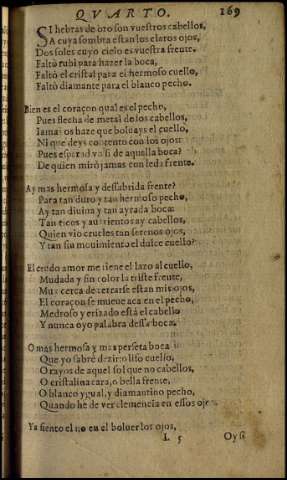 QVARTO. 169
SI hebras de oro son vuestros cabellos,
A cuya sombra estan los claros ojos,
Dos soles cuyo cielo es vuestra frente.
Faltò rubi para hazer la boca,
Faltó el cristal para el hermoso cuello,
Faltó diamante para el blanco pecho.
Bien es el coraçon qual es el pecho,
Pues flecha de metal de los cabellos,
Iamas os haze que boluays el cuello,
Ni que deys contento con los ojos:
Pues esperad vn si de aquella boca
De quien miró jamas con leda frente.
Ay mas hermosa y desabrida frente?
Para tan duro y tan hermoso pecho,
Ay tan diuina y tan ayrada boca?
Tan ricos y auarientos ay cabellos,
Quien vio crueles tan serenos ojos,
Y tan sin mouimiento el dulce cuello?
El crudo amor me tiene el lazo al cuello,
Mudada y sin color la triste frente,
Muy cerca de cerrarse estan mis ojos,
El coraçon se mueue aca en el pecho,
Medroso y erizado está el cabello
Y nunca oyo palabra dessa boca.
O mas hermosa y mas perfeta boca
Que yo sabré dezir: o liso cuello,
O rayos de aquel sol que no cabellos,
O cristalina cara, o bella frente,
O blanco ygual, y diamantino pecho,
Quando he de ver clemencia en essos ojos
Ya siento el no en el boluer los ojos,
L 5 Oysi